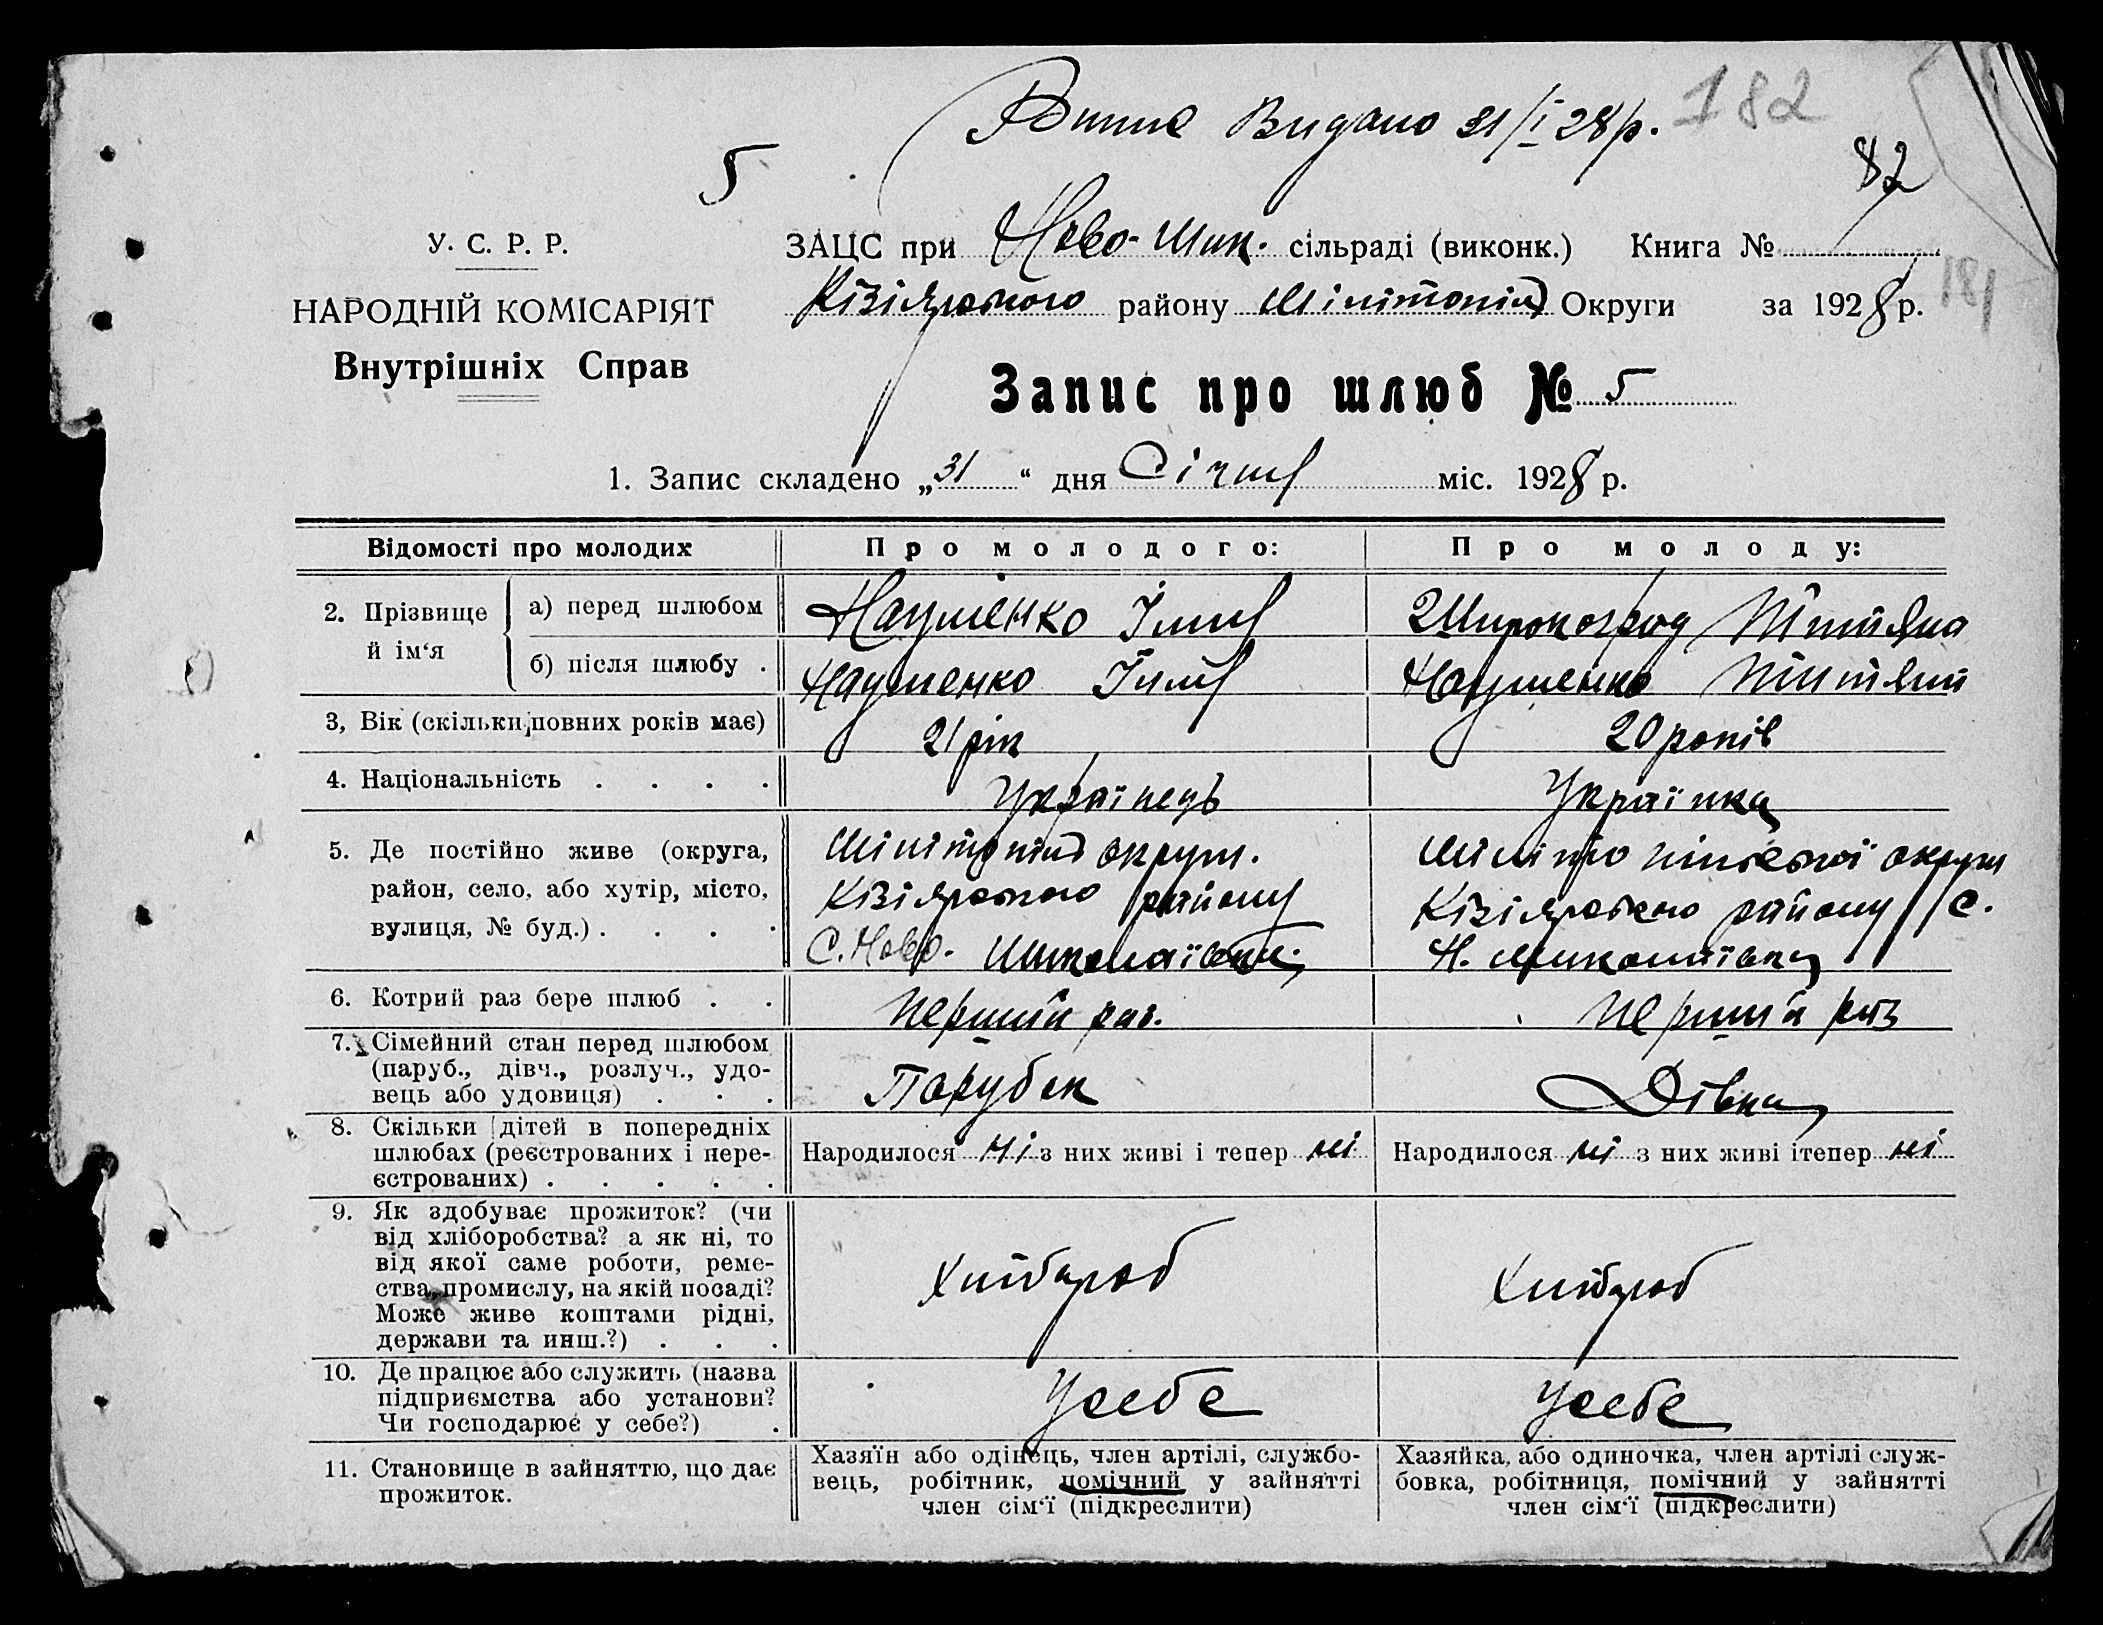 Видано 31/I 28р. 182
5
82
У. С. Р. Р.
НАРОДНІЙ КОМІСАРІЯТ
Внутрішніх Справ
ЗАЦС при Ново-Мик. сільраді (виконк.) Книга №
Кізіярського району Мілітопіль Округи за 1928 р.
181
Запис про шлюб № 5
1. Запис складено „31“ дня Січня міс. 1928 р.
Відомості про молодих Про молодого: Про молоду:
2. Прізвище й ім‘я
а) перед шлюбом Науменко Широкоград Титяна
б) після шлюбу . Науменко Науменко
3, Вік (скільки повних років має) 21 рік 20 років
4. Національність . . . . Українець Українка
5. Де постійно живе (округа,
район, село, або хутір, місто,
вулиця, № буд.) . . . .
округи.
Кізіярського району
С. Ново-Миколаївки.
округи
Кізіярського району С.
Н. Миколаївка
6. Котрий раз бере шлюб . . Перший раз. Перший раз
7. Сімейний стан перед шлюбом
(паруб., дівч., розлуч., удо-
вець або удовиця) . . .
Парубок Дівка
8. Скільки дітей в попередніх
шлюбах (реєстрованих і нере-
єстрованих) . . . . .
Народилося ні з них живі і тепер ні
Народилося ні з них живі ітепер ні
9. Як здобуває прожиток? (чи
від хліборобства? а як ні, то
від якої саме роботи, реме-
ства, промислу, на якій посаді?
Може живе коштами рідні,
держави та инш.?) . . .
Хлібороб Хлібороб
10. Де працює або служить (назва
підприємства або установи?
Чи господарює у себе?) .
Усебе Усебе
11. Становище в зайняттю, що дає
прожиток.
Хазяїн або одінець, член артілі, службо-
вець, робітник, помічний у зайнятті
член сім‘ї (підкреслити)
Хазяйка, або одиночка, член артілі служ-
бовка, робітниця, помічний у зайнятті
член сім‘ї (підкреслити)